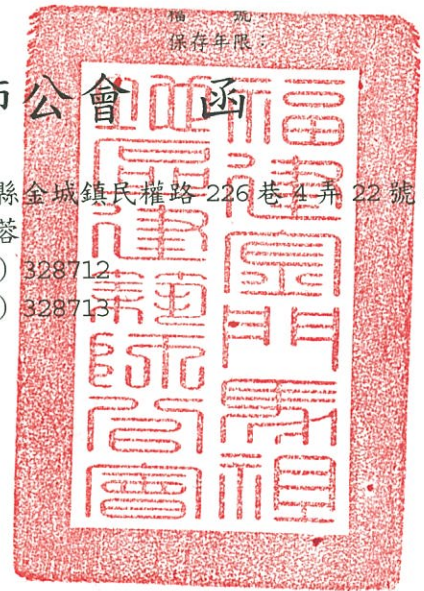 檔 號：
保存年限：
師公會 函
縣金城鎮民權路 226 巷 4 弄 22 號
蓉
) 328712
) 328713
福建金門馬祖
地區建築師公會